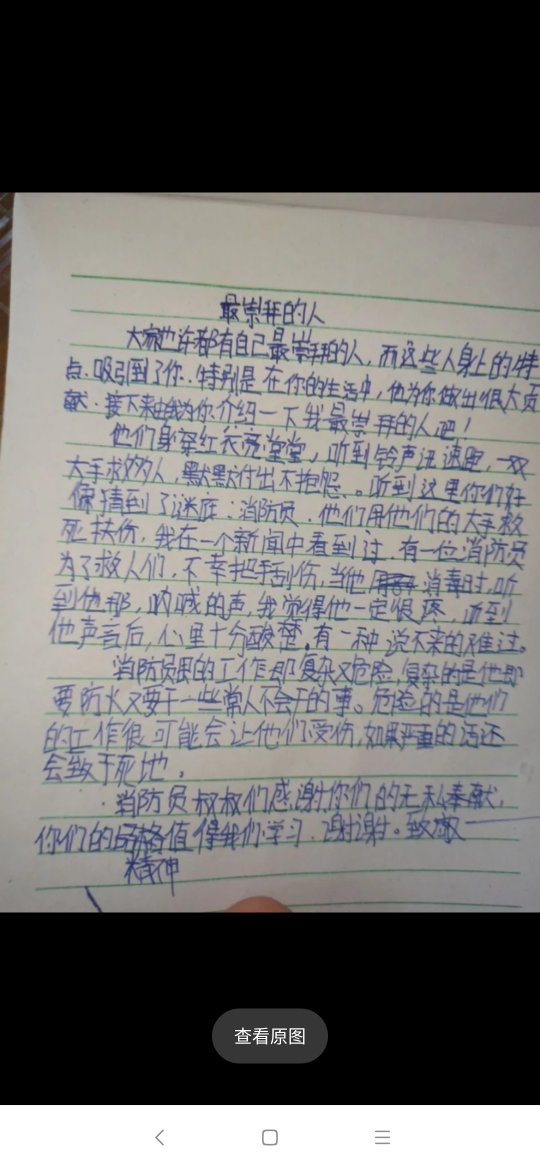 最崇拜的人
大家也许都有自己最崇拜的人，而这些人身上的特
点.吸引到了你.特别是在你的生活中，他为你做出很大贡
献.接下来由我为你介绍一下我最崇拜的人吧！
他们身穿红衣亮堂堂，听到铃声迅速跑，一双
大手救人，默默付出不抱怨。听到这里你们好
像猜到了谜底：消防员.他们用他们的大手救
死扶伤，我在一个新闻中看到过.有一位消防员
为了救人们，不幸把手刮伤，当他消毒时，听
到他那，呐喊的声，我觉得他一定很疼，听到
他声音后，心里十分酸楚.有一种说不来的难过。
消防员的工作即复杂又危险，复杂的是他即
要防火又要干一些常人不会干的事。危险的是他们
的工作很可能会让他们受伤，如果严重的话还
会致于死地。
消防员叔叔们感谢你们的无私奉献，
你们的品格值得我们学习.谢谢.致敬
精神
查看原图